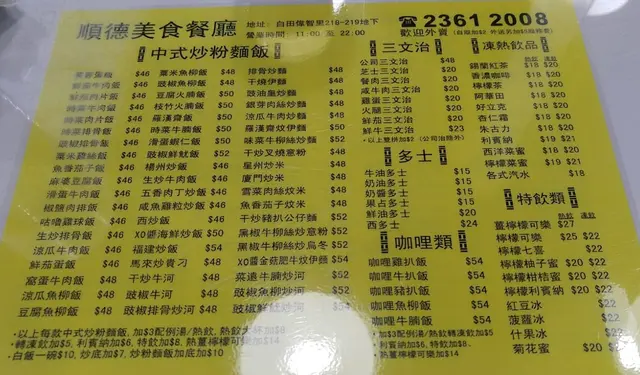 順德美食餐廳
地址: 白田偉智里216-219地下
營業時間: 11:00 至 22:00
☎2361 2008
歡迎外賣
中式炒粉麵飯
$46 粟米魚柳飯 $48 排骨炒麵 $48
$46 豉椒魚柳飯 $48 干燒伊麵 $48
$46 豆腐火腩飯 $50 豉油皇炒麵 $48
$46 枝竹火腩飯 $50 銀芽肉絲炒麵 $48
時菜肉片飯 $46 羅漢齋飯 $50 涼瓜牛肉炒麵 $48
時菜排骨飯 $46 時菜牛腩飯 $50 羅漢齋炆伊麵 $50
豉椒排骨飯 $46 滑蛋蝦仁飯 $50 味菜牛柳絲炒麵 $52
粟米雞絲飯 $46 豉椒鮮魷飯 $52 干炒叉燒意粉 $48
魚香茄子飯 $46 楊州炒飯 $46 星州炒米 $48
麻婆豆腐飯 $46 生炒牛肉飯 $46 廈門炒米 $48
滑蛋牛肉飯 $46 五香肉丁炒飯 $46 雪菜肉絲炆米 $48
椒鹽肉排飯 $46 咸魚雞粒炒飯 $46 魚香茄子炆米 $48
咕嚕雞球飯 $46 西炒飯 $46 干炒豬扒公仔麵 $52
生炒排骨飯 $46 XO醬海鮮炒飯 $50 黑椒牛柳絲炒意粉 $52
涼瓜牛肉飯 $46 福建炒飯 $54 黑椒牛柳絲炒烏冬 $52
鮮茄蛋飯 $46 馬來炒貴刁 $48 XO醬金菇肥牛炆伊麵 $54
窩蛋牛肉飯 $46 干炒牛河 $48 菜遠牛腩炒河 $52
涼瓜魚柳飯 $48 豉椒牛河 $48 豉椒鮮魷炒河 $54
豆腐魚柳飯 $48 豉椒排骨炒河 $48 豉椒魚柳炒河 $54
•以上每款中式炒粉麵飯, 加$3配例湯/熱飲, 熱飲大杯加$6
•轉凍飲加$5, 利賓納加$6, 特飲加$8, 熱薑檸檬可樂加$14
•白飯一碗$10, 炒底加$7, 炒粉麵飯加底加$10
三文治
公司三文治 $48
芝士三文治 $20
餐肉三文治 $20
咸牛肉三文治 $20
雞蛋三文治 $20
火腿三文治 $20
鮮茄三文治 $20
鮮牛三文治 $23
*以上雙拼加$2 (公司治除外)
多士
牛油多士 $15
奶油多士 $15
奶醬多士 $15
果占多士 $15
鮮油多士 $20
西多士 $24
咖哩類
咖哩雞扒飯 $54
咖哩牛扒飯 $54
咖哩豬扒飯 $54
咖哩魚柳飯 $54
咖哩牛腩飯 $54
加$3配例湯/熱飲, 轉凍飲加$5
利賓納加$6, 特飲加$8,
熱薑檸檬可樂加$14
凍熱飲品
錫蘭紅茶 $18 $20
香濃咖啡 $18 $20
檸檬茶 $18 $20
阿華田 $18 $20
好立克 $18 $20
杏仁霜 $18 $20
朱古力 $18 $20
利賓納 $19 $21
西洋菜蜜 $18 $20
檸檬菜蜜 $19 $21
各式汽水 $18
特飲類
熱飲 凍飲
薑檸檬可樂 $27
檸檬可樂 $25 $22
檸檬七喜 $22
檸檬柚子蜜 $20 $22
檸檬柑桔蜜 $20 $22
檸檬利賓納 $20 $22
紅豆冰 $22
菠蘿冰 $22
什果冰 $22
菊花蜜 $20 $22